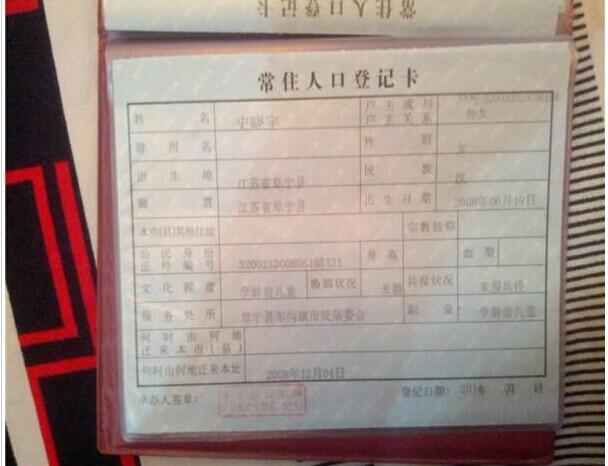 常住人口登记卡
常住人口登记卡
姓名 户主或与户主关系 孙女
曾用名 性别 女
出生地 江苏省阜宁县 民族 汉
籍贯 江苏省阜宁县 出生日期 2008年06月19日
本市(县)其他住址 宗教信仰
公民身份证件编号 身高 血型
文化程度 学龄前儿童 婚姻状况 未婚 兵役状况 未服兵役
服务处所 阜宁县东沟镇市民居委会 职业 学龄前儿童
何时由何地迁来本市(县)
何时由何地迁来本址 2008年12月04日
承办人签章: 登记日期: